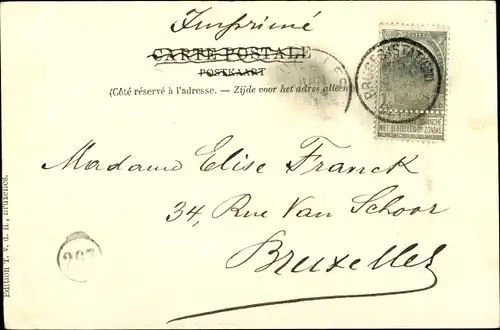 Imprimé
CARTE POSTALE
POSTKAART
(Côté réservé à l'adresse. — Zijde voor het adres alleen
BRUGES (STATION)
NIET BESTELLEN OP ZONDAG
Madame Elise Franck
34, Rue Van Schoor
Bruxelles
267
Edition T. v. d. H., Bruxelles.